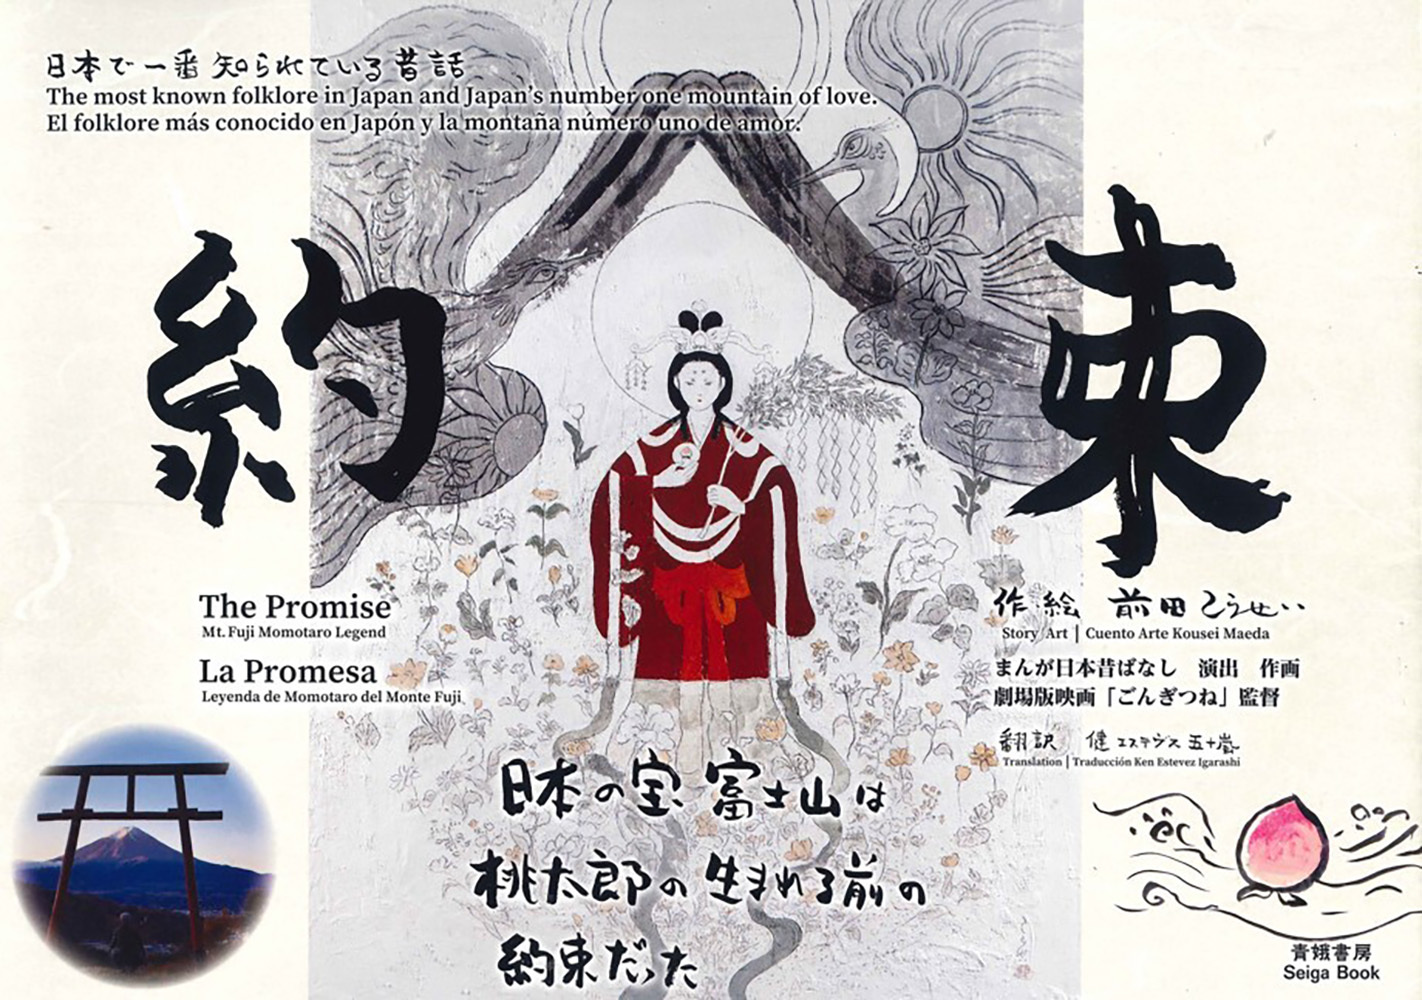 日本で一番 知られている昔話
The most known folklore in Japan and Japan's number one mountain of love.
El folklore más conocido en Japón y la montaña número uno de amor.
約束
The Promise
Mt. Fuji Momotaro Legend
La Promesa
Leyenda de Momotaro del Monte Fuji
作 絵 前田こうせい
Story Art | Cuento Arte Kousei Maeda
まんが日本昔ばなし 演出 作画
劇場版映画「ごんぎつね」監督
翻訳 健 エステヴス 五十嵐
Translation | Traducción Ken Estevez Igarashi
日本の宝 富士山は
桃太郎の生まれる前の
約束だった
青娥書房
Seiga Book